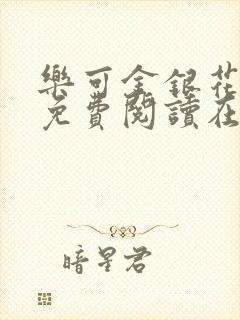 樂可金銀花
免費閱讀在
暗星君